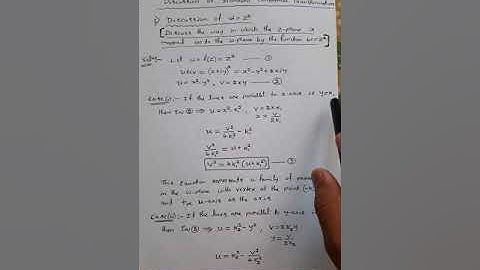 Discussion of Standard Conformal Transformations
1) Discussion of w = z²
[Discuss the way in which the z-plane is
mapped onto the w-plane by the function w = z²]
Let w = f(z) = z² — ①
u+iv = (x+iy)² = x²-y²+2xiy
u = x²-y², v = 2xy — ②
Case(i):- If the lines are parallel to x-axis ie y=k₁
then In ② ⇒ u = x²-k₁², v = 2xk₁
x = v/2k₁
u = v²/4k₁² - k₁²
v²/4k₁² = u + k₁²
v² = 4k₁² (u + k₁²) — ③
This equation represents a family of
in the w-plane with vertex at the point
and +ve u-axis as the axis
Case(ii):- If the lines are parallel to y-axis
then In ② ⇒ u = k₂² - y², v = 2k₂y
y = v/2k₂
u = k₂² - v²/4k₂²